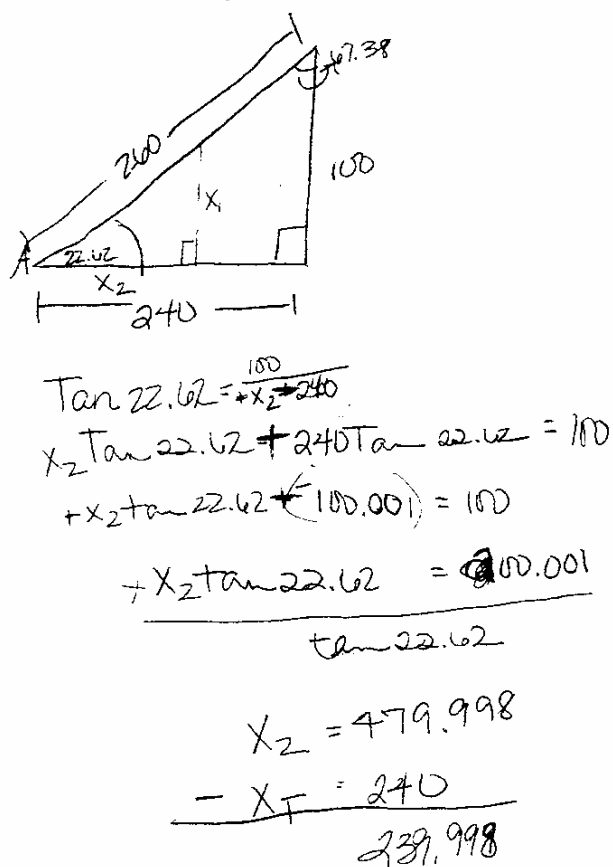 67.38
260
100
X₁
A 22.62
X₂
240
Tan 22.62 = 100 / +X₂+240
X₂ Tan 22.62 + 240 Tan 22.62 = 100
+X₂ tan 22.62 + (-100.001) = 100
+X₂ tan 22.62 = 200.001
tan 22.62
X₂ = 479.998
- X_T = 240
239.998